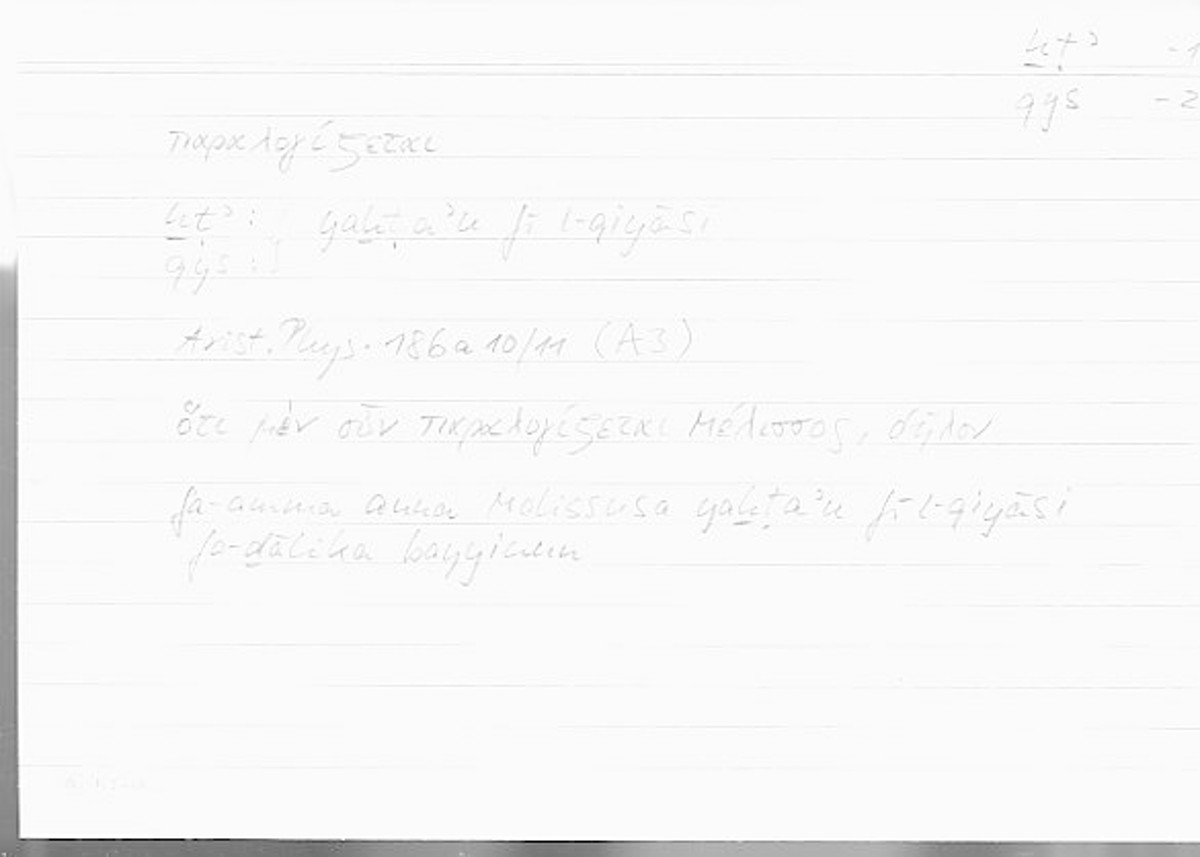 ḫṭʾ -1
qys -2
παραλογίζεται
ḫṭʾ : yaḫṭaʾu fī l-qiyāsi
qys :
Arist. Phys. 186a10/11 (A3)
ὅτι μὲν οὖν παραλογίζεται Μέλισσος, δῆλον
fa-amma anna Malissusa yaḫṭaʾu fī l-qiyāsi
fa-ḏālika bayyinun